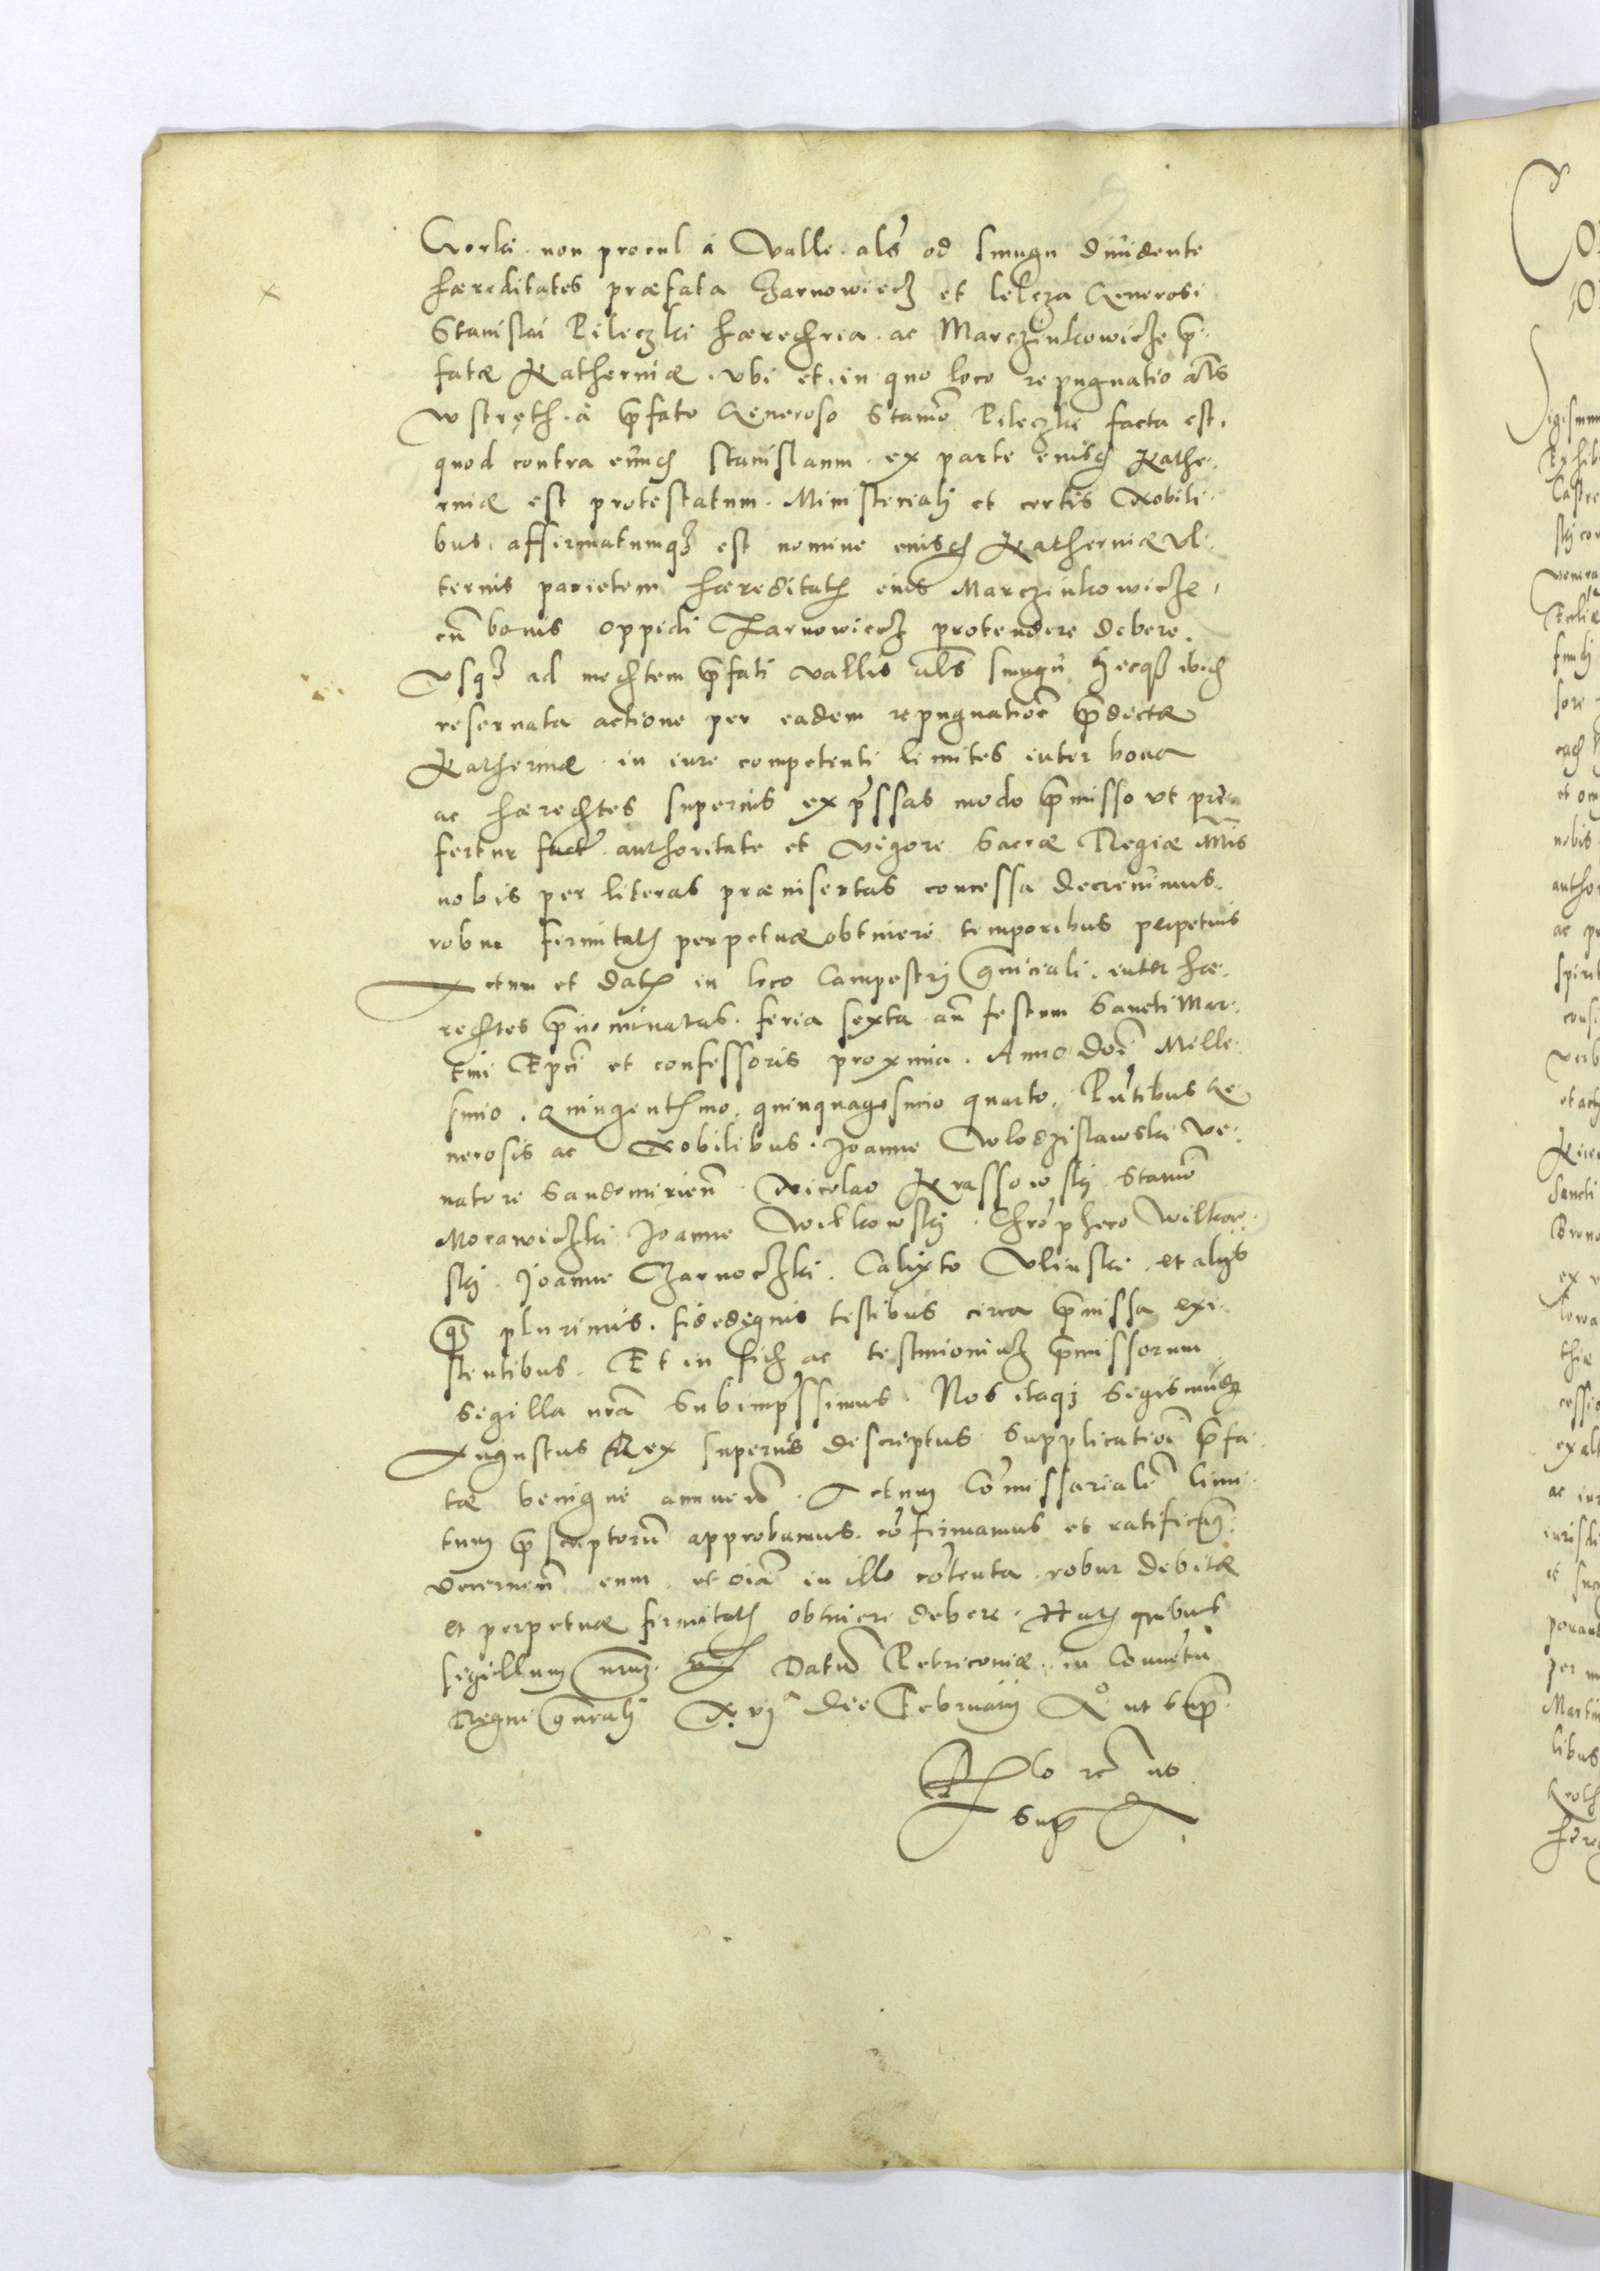 Gorki non procul á Valle als̃ od smugu diuidente
hæreditates præfata Zarnowiecz et lelcza Generosi
Stanislai Pileczki hæredria ac Marczinkowicze p̃
fatæ Katherinæ vbi et in quo loco repugnatio als̃
wstręth á p̃fato Generoso Stanió Pileczki facta est.
quod contra eund Stanislaum ex parte eiusd Kathe
rinæ est protestatum Ministeriali et certis Nobili
bus affirmatumqȝ est nomine eiusd Katherinæ vl
terius parietem hæreditatis eius Marczinkowicze
cũ bonis oppidi Zarnowiecz protendere debere
vsqȝ ad p̃fati vallis als̃ smugũ
reseruata actione per eadem repugnatioẽ p̃dictæ
Katherinæ in iure competenti limites inter bona
ac hæredtes superius expressas modo p̃misso vt præ
fertur authoritate et vigore Sacræ Regiæ Mtis
nobis per literas præinsertas concessa decreuimus
robur firmitatis perpetuæ obtinere temporibus perpetuis
Actum et dat in loco Campestri inter hæ
redtes p̃nominatas feria sexta an̄ festum Sancti Mar
tini Epĩ et confessoris proxima Anno Doñi Mille
simo quingentmo quinquagesimo quarto Pñtibus Ge
nerosis ac Nobilibus Joanne Wlodzislawski Ve
natore Sandomirieñ Nicolao Krassowsky Stanió
Morawiczki Joanne Witkowsky Chrõphero Wilkow
sky Joanne Czarnoczki Calixto Vlinski et alys
qȝ plurimis fidedignis testibus circa p̃missa exi
stentibus Et in fid ac testimoniu p̃missorum
Sigilla nr̃a Subimpressimus Nos itaqȝ Sigismũd
Augustus Rex superius descriptus supplicatioĩ p̃fa
tæ benigne annuen Actum Cõmissarialẽ limi
tum p̃scriptorũ approbamus cõfirmamus et ratificam
decerneñ eum et oĩa in illo cõtenta robur debitæ
et perpetuæ firmitatis obtinere debere Har quibus
sigillum nrm Datũ Petricouiæ in Conuẽtu
Regni gñrali die Februarii Aº ut sup
rõ ut
sup